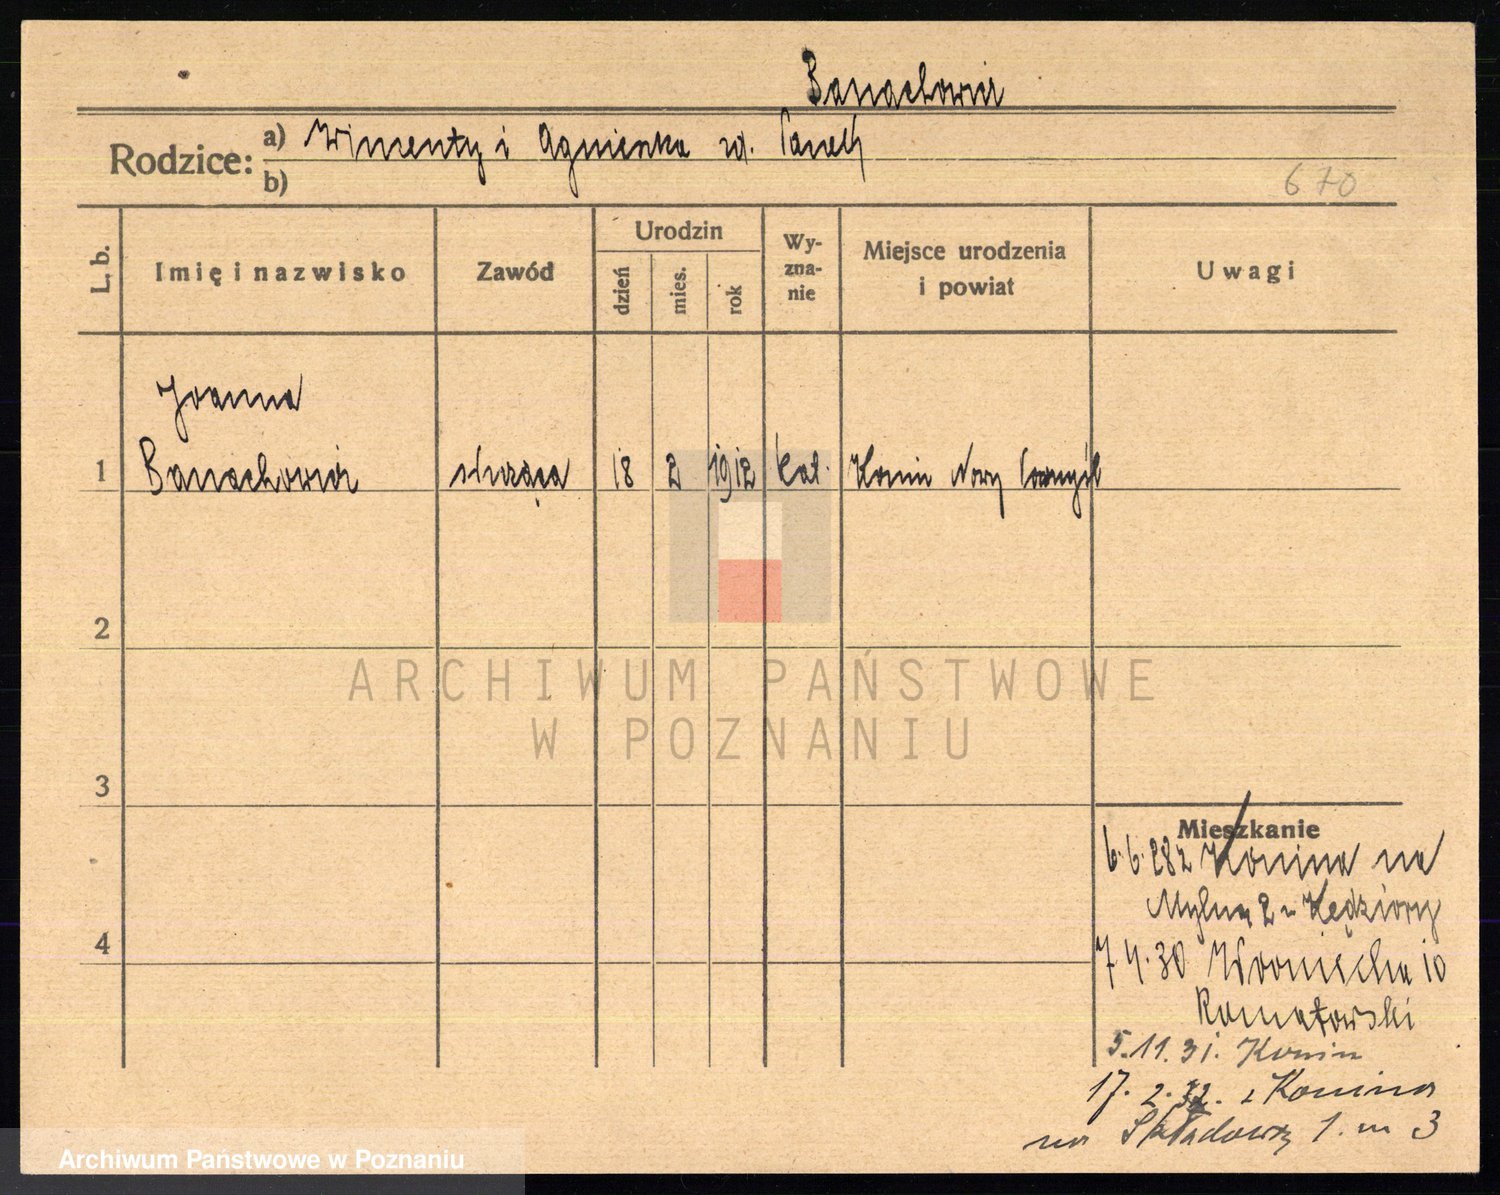 Banachowicz
Rodzice: a) Wincenty i Agnieszka zd. Panek
b)
670
L. b.
Imię i nazwisko
Zawód
Urodzin
dzień
mies.
rok
Wy-
zna-
nie
Miejsce urodzenia
i powiat
Uwagi
Joanna
1 Banachowicz służąca 18 2 1912 kat. Konin Nowy Tomyśl
2
3
4
ARCHIWUM PAŃSTWOWE
W POZNANIU
Mieszkanie
6.6.28 z Konina na
Mylną 2 u Kędziory
7 4.30 Woniecka 10
Romatowski
5.11.31. Konin
17.2.32. z Konina
na Składową 1. m 3
Archiwum Państwowe w Poznaniu